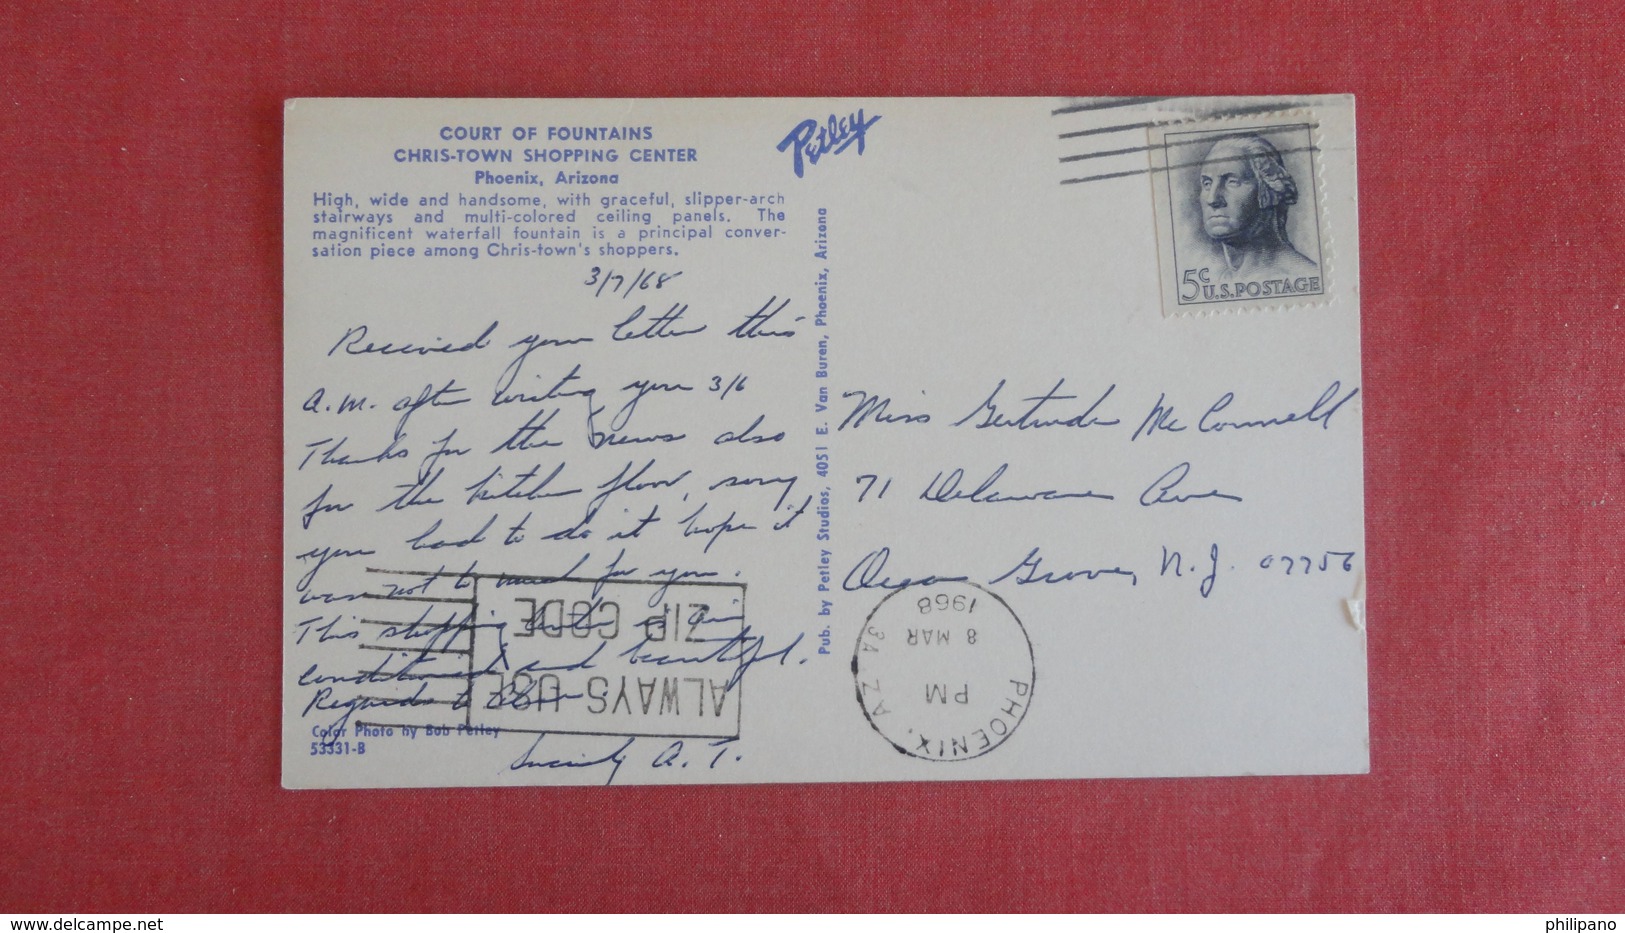 COURT OF FOUNTAINS
CHRIS-TOWN SHOPPING CENTER
Phoenix, Arizona
High, wide and handsome, with graceful, slipper-arch
stairways and multi-colored ceiling panels. The
magnificent waterfall fountain is a principal conver-
sation piece among Chris-town's shoppers.
3/7/68
Received your letter this
a.m. after writing you 3/6
Thanks for the news also
for the kitchen floor, sorry
you had to do it hope it
was not to much for you.
This shopping center is air
conditioned and beautiful.
Regards to
Sincerely A. T.
Color Photo by Bob Petley
53331-B
Petley
Pub. by Petley Studios, 4051 E. Van Buren, Phoenix, Arizona
5c
U.S. POSTAGE
Miss Gertrude McConnell
71 Delaware Ave
Ocean Grove, N.J. 07756
ALWAYS USE
ZIP CODE
PHOENIX, ARIZ
PM
8 MAR
1968
delcampe.net
philipano